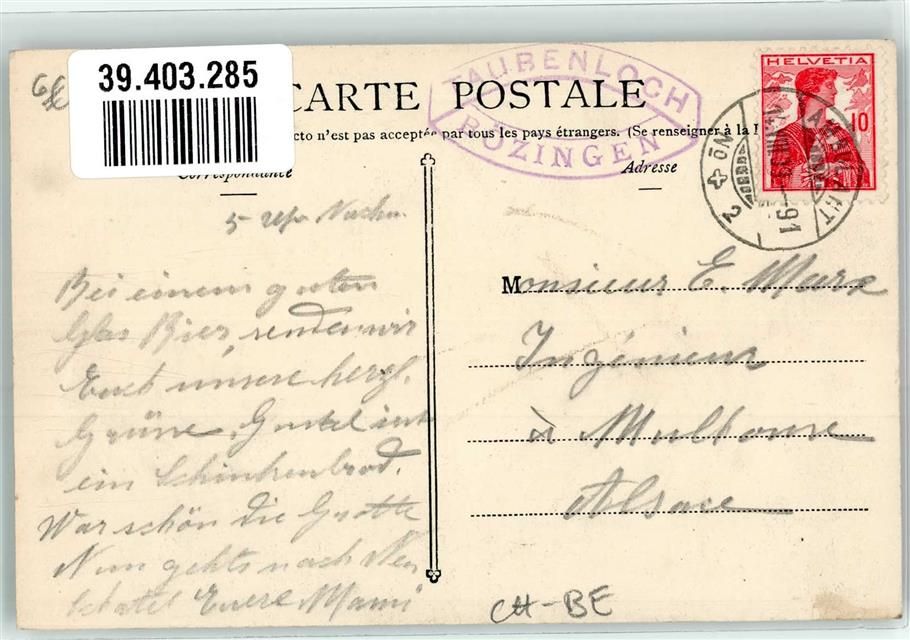 39.403.285
CARTE POSTALE
TAUBENLOCH
BÖZINGEN
HELVETIA
10
n'est pas acceptée par tous les pays étrangers. (Se renseigner à la
Correspondance
Adresse
5 Nachm.
Bei einem guten
Glas Bier, senden wir
Euch unsere herzl.
Grüsse, Gustel
ein Schinkenbrod.
War schön die Grotte
Nun gehts nach Neu
schatel Euere Mami
Monsieur E. Marx
Ingénieur
à Mulhouse
Alsace
CH-BE